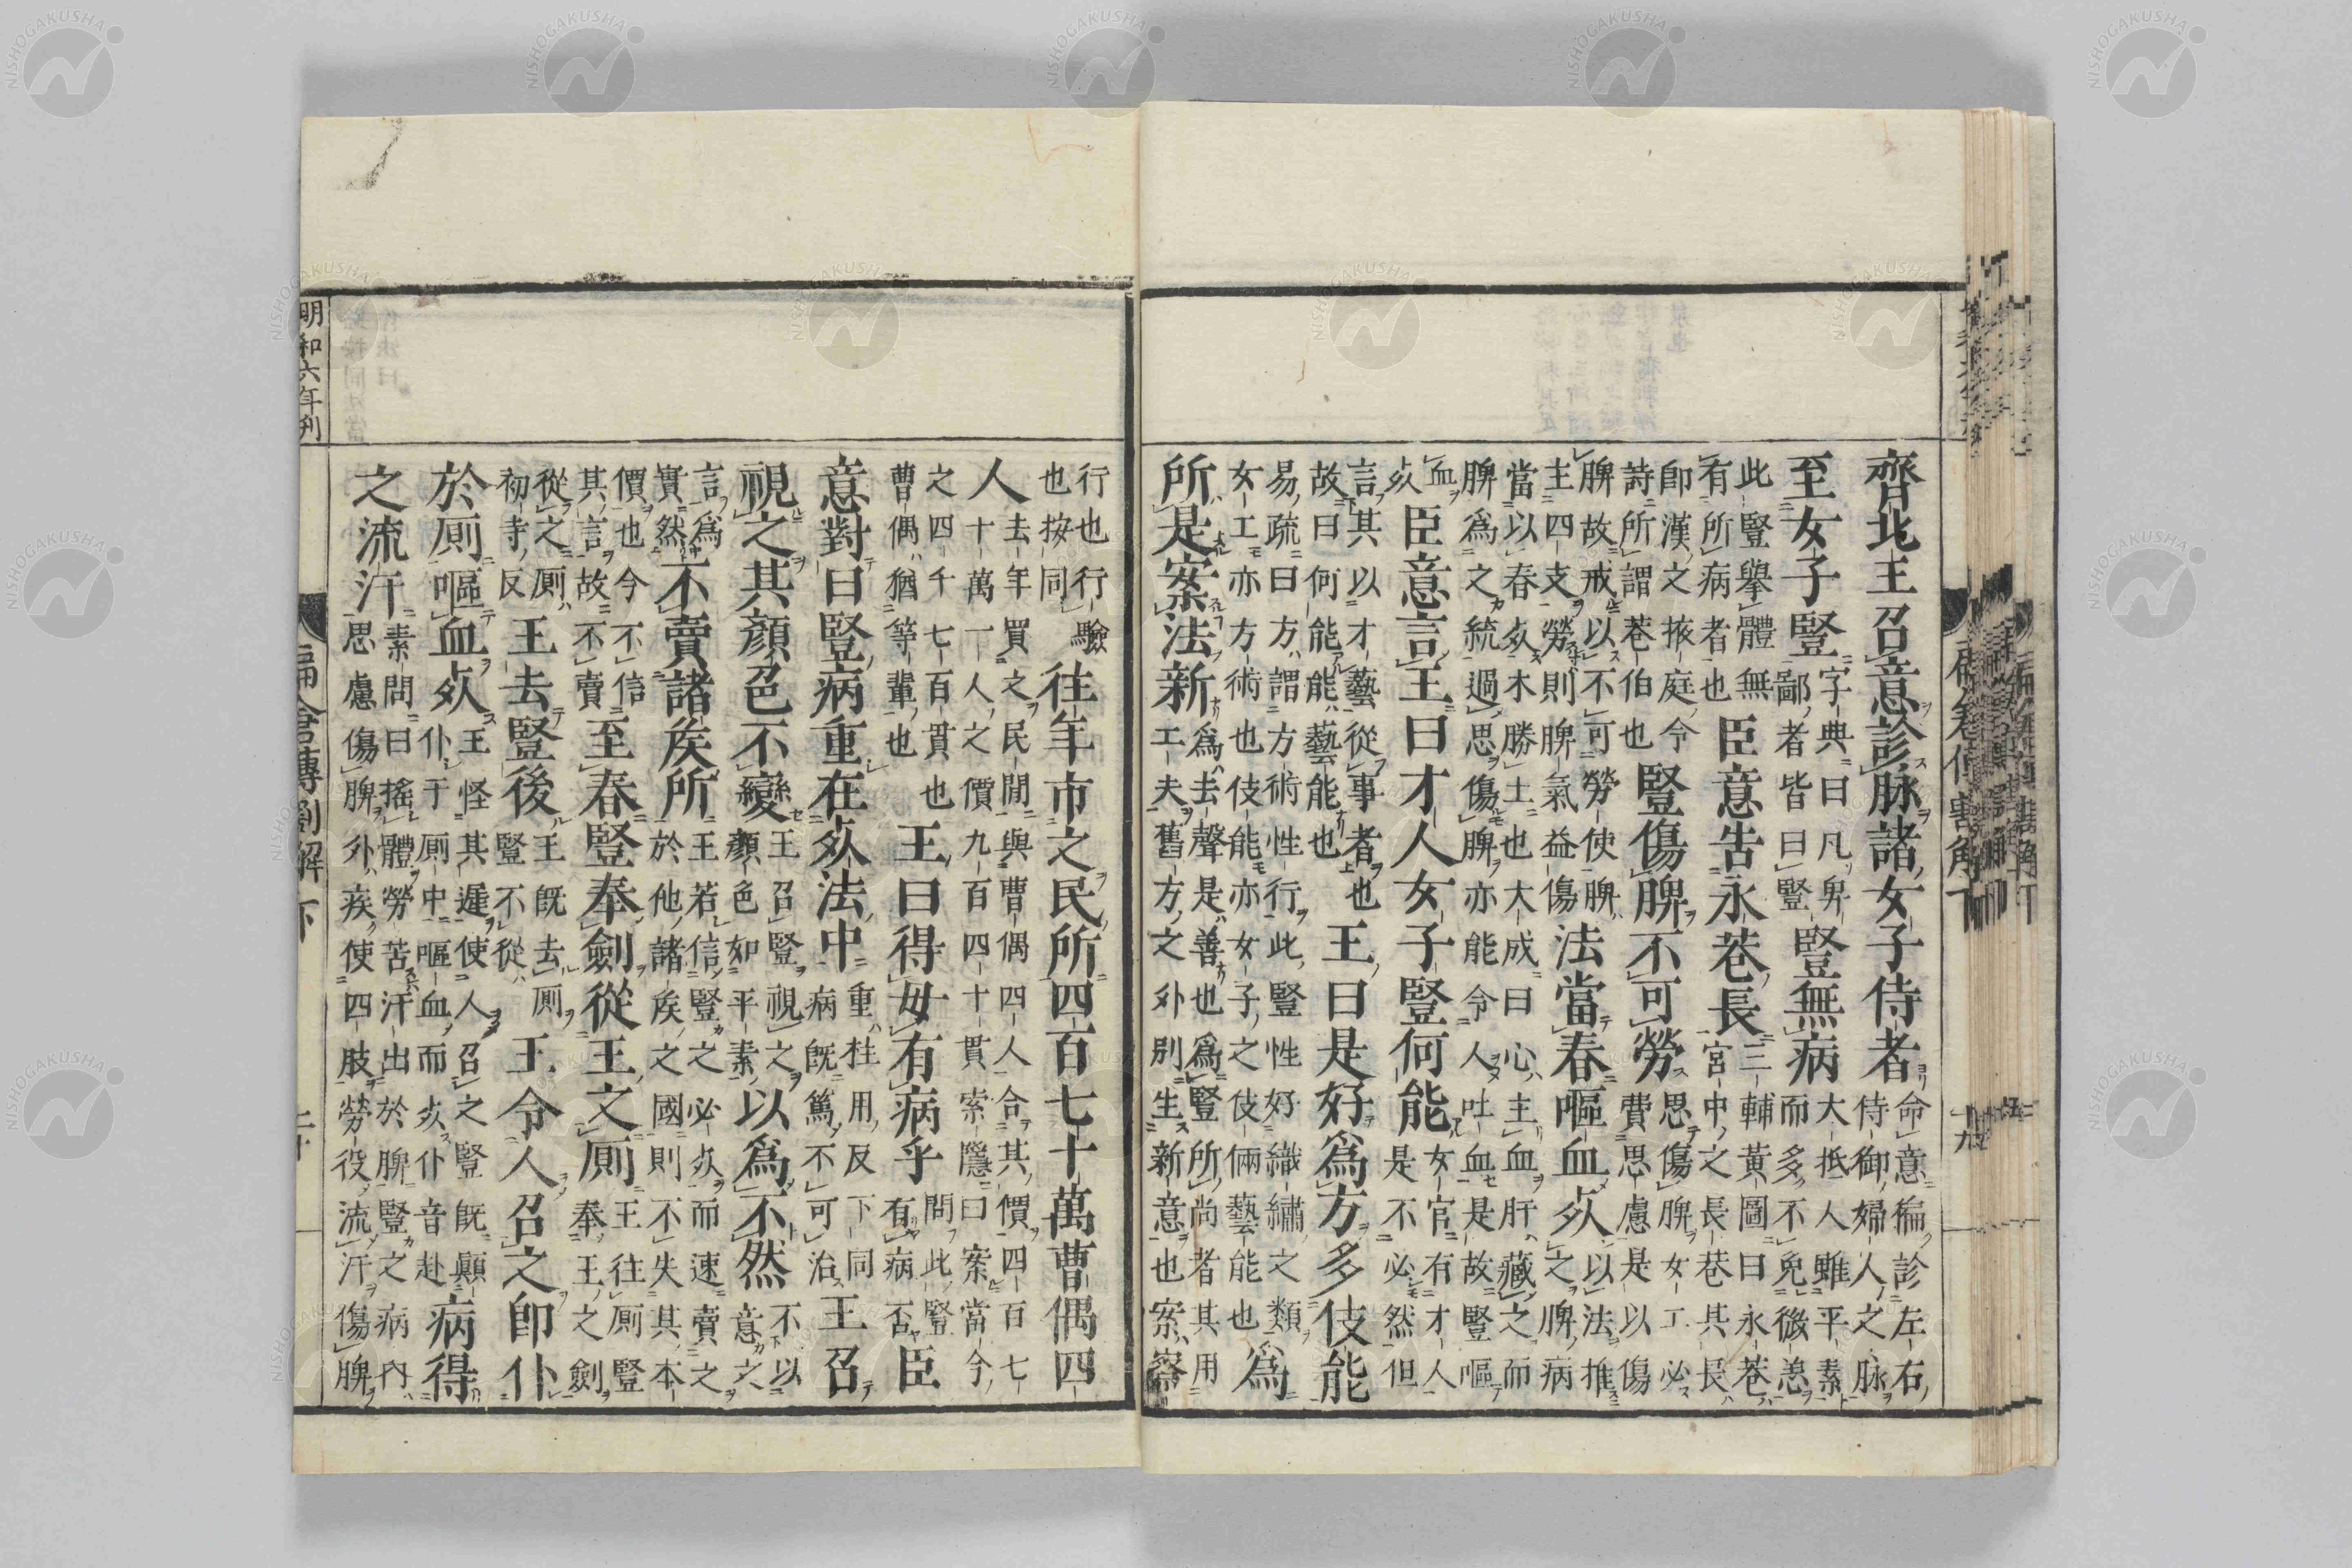 齊北王召意診脉諸女子侍者命意徧診左右侍御婦人之脉
至女子豎字典曰凡卑豎鄙者皆曰豎無病大抵人雖平素而多不免微恙
此豎擧體無有所病者也臣意告永巷長三輔黃圖曰永巷宮中之長巷其長
即漢之掖庭令詩所謂巷伯也豎傷脾不可勞思傷脾女工必費思慮是以傷
脾故戒以不可勞使脾主四支勞則脾氣益傷法當春嘔血死以法推之脾病
當以春死木勝土也大成曰心主血肝藏之而脾爲之統過思傷脾亦能令人吐血是故豎嘔
血死臣意言王曰才人女子豎何能女官有才人是不必然但
言其以才藝從事者也故曰何能能藝能也王曰是好爲方多伎能
易疏曰方謂方術性行此豎性好織繡之類女工亦方術也伎能亦女子之伎倆藝能也爲
所是案法新爲去聲是善也爲豎所尚者其用工夫舊方之外別生新意也案察
十九
行也行驗也按同往年市之民所四百七十萬曹偶四
人去年買之民間與曹偶四人合其價四百七十萬一人之價九百四十貫索隱曰案當今
之四千七百貫也曹偶猶等輩也王曰得毋有病乎問此豎有病否臣
意對曰豎病重在死法中重柱用反下同病既篤不可治王召
視之其顏色不變王召豎視之顏色如平素以爲不然不以意之
言爲實然不賣諸矦所王若信豎之必死而速賣之於他諸矦之國則不失其本
價也今不信其言故不賣至春豎奉劍從王之厠王往厠豎奉王之劍
從之厠初寺反王去豎後王既去厠豎不從王令人召之即仆
於厠嘔血死王怪其遲使人召之豎既顛仆于厠中嘔血而死仆音赴病得
之流汗素問曰搖體勞苦汗出於脾豎之病内思慮傷脾外疾使四肢勞役流汗傷脾
明和六年刋
扁倉傳割解下
二十